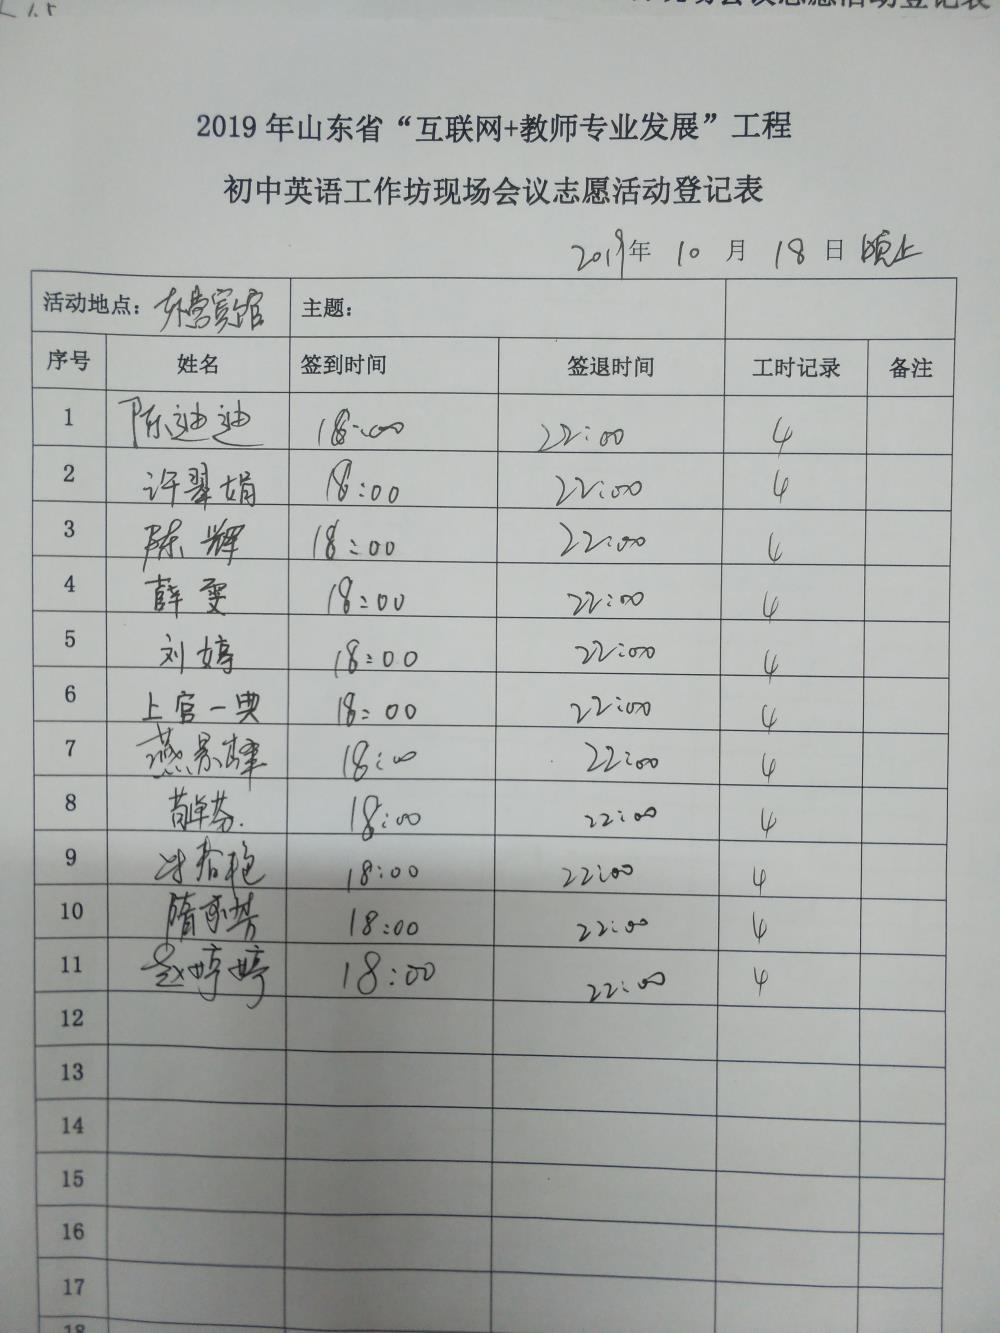 2019年山东省“互联网+教师专业发展”工程
初中英语工作坊现场会议志愿活动登记表
2019年 10 月 18 日 晚上
活动地点：东营宾馆 主题：
序号 姓名 签到时间 签退时间 工时记录 备注
1 陈迪迪 18:00 22:00 4
2 许翠娟 18:00 22:00 4
3 陈辉 18:00 22:00 4
4 薛雯 18:00 22:00 4
5 刘婷 18:00 22:00 4
6 上官一典 18:00 22:00 4
7 燕景峰 18:00 22:00 4
8 18:00 22:00 4
9 18:00 22:00 4
10 18:00 22:00 4
11 赵婷婷 18:00 22:00 4
12
13
14
15
16
17
18